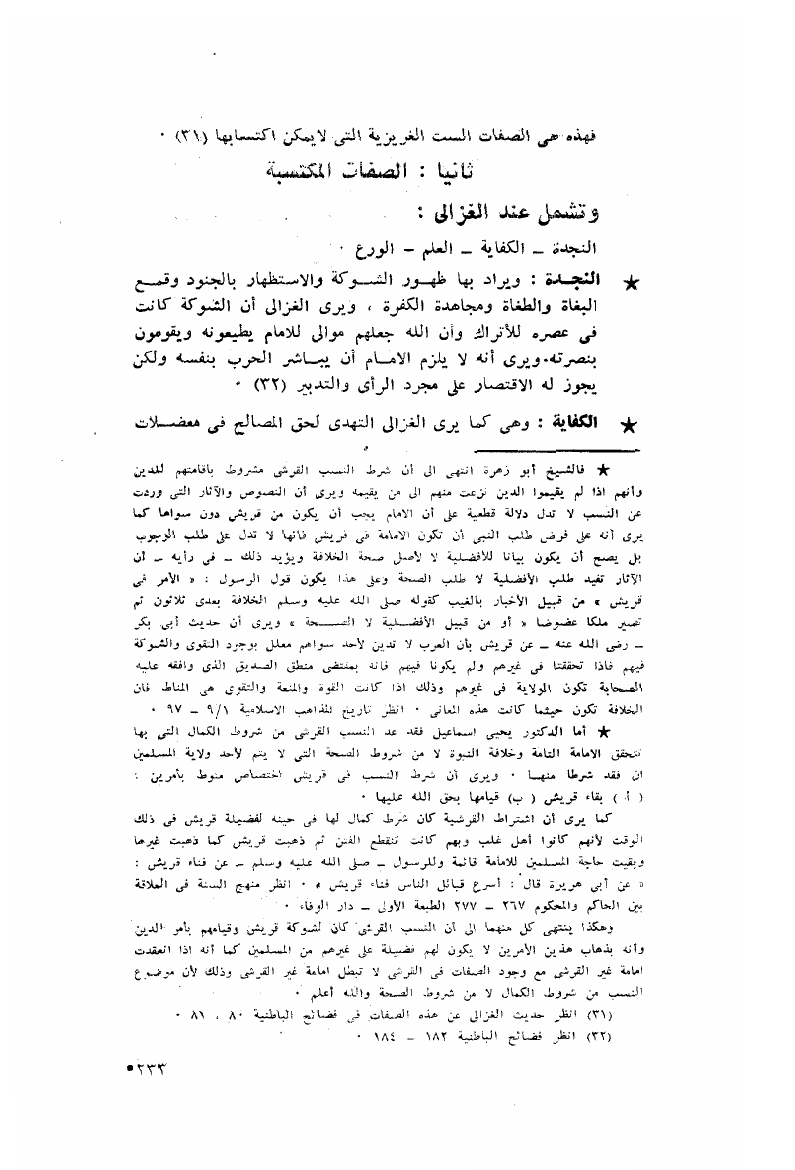 فهذه هى الصفات الست الغريزية التى لايمكن اكتسابها (٣١) ٠
ثانيا : الصفات المكتسبة
وتشمل عند الغزالى :
النجدة ــ الكفاية ــ العلم ــ الورع ٠
★ النجـدة : ويراد بها ظهـور الشـوكة والاستظهار بالجنود وقمـع
البغاة والطغاة ومجاهدة الكفرة ، ويرى الغزالى أن الشوكة كانت
فى عصره للأتراك وأن الله جعلهم موالى للامام يطيعونه ويقومون
بنصرته٠ويرى أنه لا يلزم الامـام أن يبـاشر الحرب بنفسه ولكن
يجوز له الاقتصار على مجرد الرأى والتدبير (٣٢) ٠
★ الكفاية : وهى كما يرى الغزالى التهدى لحق المصالح فى معضـلات
★ فالشيخ أبو زهرة انتهى الى أن شرط النسب القرشى مشروط باقامتهم للدين
وأنهم اذا لم يقيموا الدين نزعت منهم الى من يقيمه ويرى أن النصوص والآثار التى وردت
عن النسب لا تدل دلالة قطعية على أن الامام يجب أن يكون من قريش دون سواها كما
يرى أنه على فرض طلب النبى أن تكون الامامة فى قريش فانها لا تدل على طلب الوجوب
بل يصح أن يكون بيانا للأفضلية لا لأصل صحة الخلافة ويؤيد ذلك ــ فى رأيه ــ أن
الآثار تفيد طلب الأفضلية لا طلب الصحة وعلى هذا يكون قول الرسول : « الأمر فى
قريش » من قبيل الأخبار بالغيب كقوله صلى الله عليه وسلم الخلافة بعدى ثلاثون ثم
تصير ملكا عضوضا « أو من قبيل الأفضـلية لا الصـحة » ويرى أن حديث أبى بكر
ــ رضى الله عنه ــ عن قريش بأن العرب لا تدين لأحد سواهم معلل بوجود التقوى والشوكة
فيهم فاذا تحققتا فى غيرهم ولم يكونا فيهم فانه بمقتضى منطق الصديق الذى وافقه عليه
الصحابة تكون الولاية فى غيرهم وذلك اذا كانت القوة والمنعة والتقوى هى المناط فان
الخلافة تكون حيثما كانت هذه المعانى ٠ انظر تاريخ المذاهب الاسلامية ٩/١ ــ ٩٧ ٠
★ أما الدكتور يحيى اسماعيل فقد عد النسب القرشى من شروط الكمال التى بها
تتحقق الامامة التامة وخلافة النبوة لا من شروط الصحة التى لا يتم لأحد ولاية المسلمين
ان فقد شرطا منهـا ٠ ويرى أن شرط النسب فى قريش اختصاص منوط بأمرين :
( أ ) بقاء قريش ( ب) قيامها بحق الله عليها ٠
كما يرى أن اشتراط القرشية كان شرط كمال لها فى حينه لفضيلة قريش فى ذلك
الوقت لأنهم كانوا أهل غلب وبهم كانت تنقطع الفتن ثم ذهبت قريش كما ذهبت غيرها
وبقيت حاجة المسلمين للامامة قائمة وللرسول ــ صلى الله عليه وسلم ــ عن فناء قريش :
« عن أبى هريرة قال : أسرع قبائل الناس فناء قريش » ٠ انظر منهج السنة فى العلاقة
بين الحاكم والمحكوم ٢٦٧ ــ ٢٧٧ الطبعة الأولى ــ دار الوفاء ٠
وهكذا ينتهى كل منهما الى أن النسب القرشى كان لشوكة قريش وقيامهم بأمر الدين
وأنه بذهاب هذين الأمرين لا يكون لهم فضيلة على غيرهم من المسلمين كما أنه اذا انعقدت
امامة غير القرشى مع وجود الصفات فى القرشى لا تبطل امامة غير القرشى وذلك لأن موضوع
النسب من شروط الكمال لا من شروط الصحة والله أعلم ٠
(٣١) انظر حديث الغزالى عن هذه الصفات فى فضائح الباطنية ٨٠ ، ٨١ ٠
(٣٢) انظر فضائح الباطنية ١٨٢ ــ ١٨٤ ٠
٢٣٣